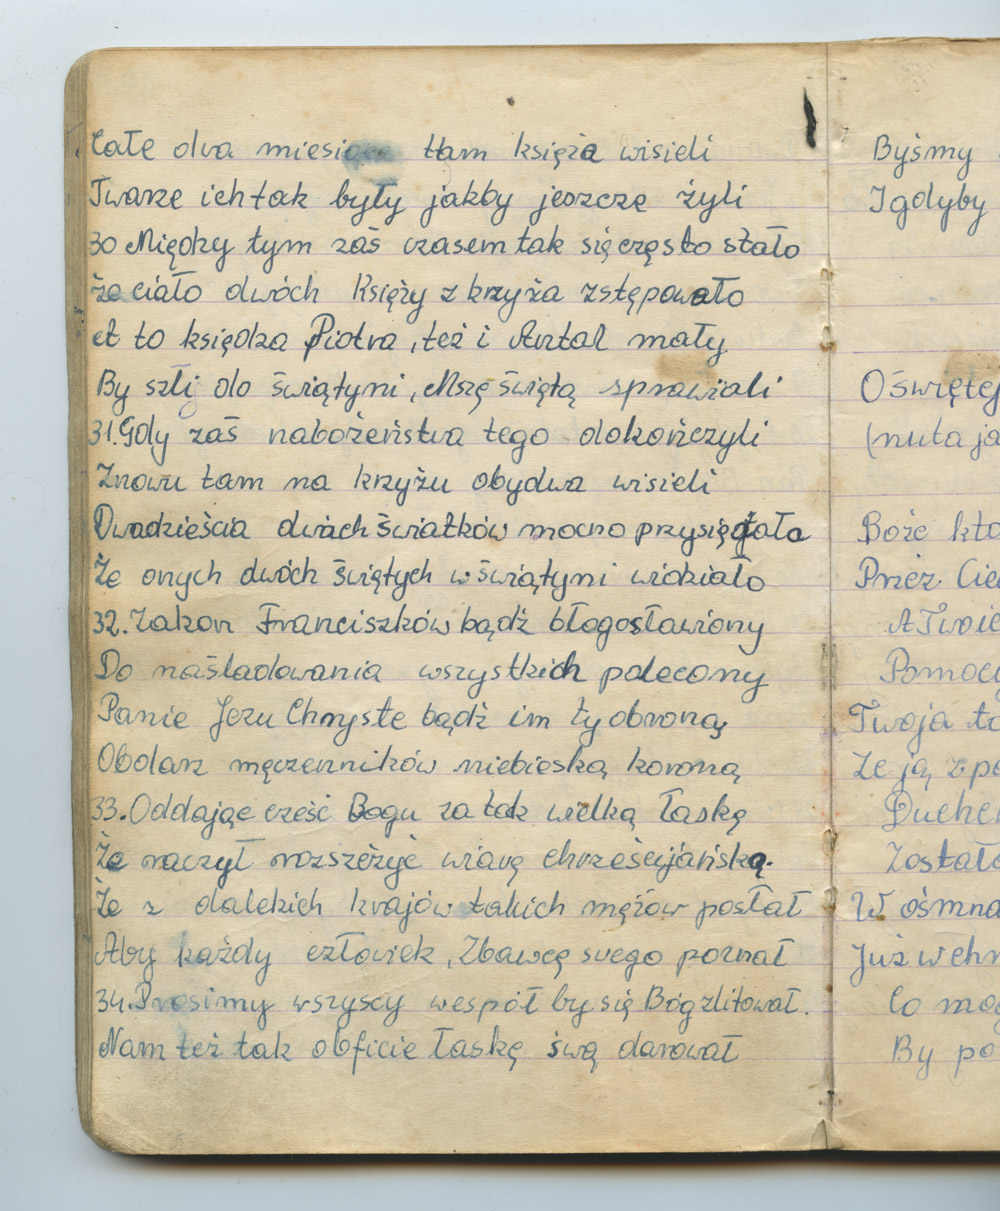 Całe dwa miesiące tam księża wisieli
Twarze ich tak były jakby jeszcze żyli
30 Między tym zaś czasem tak się często stało
Że ciało dwóch Księży z krzyża zstępowało
A to księdza Piotra, też i Antal mały
By szli do świątyni, Mszę świętą sprawiali
31. Gdy zaś nabożeństwa tego dokończyli
Znowu tam na krzyżu obydwa wisieli
Dwadzieścia dwóch światków mocno przysięgało
Że onych dwóch świętych w świątyni widziało
32. Zakon Franciszków bądź błogosławiony
Do naśladowania wszystkich polecony
Panie Jezu Chryste bądź im ty obroną
Obdarz męczenników niebieską koroną
33. Oddając cześć Bogu za tak wielką łaskę
Że raczył rozszeżyć wiarę chrześcijańską.
Że z dalekich krajów takich mężów posłał
Aby każdy człowiek, Zbawcę swego poznał
34. Prosimy wszyscy wespół by się Bóg zlitował.
Nam też tak obficie łaskę swą darował
Byśmy
I gdyby
O świętej
(nuta ja
Boże któ
Przez Cie
A Twoje
Pomocy
Twoja to
Że ją z po
Duchem
Została
W ośmna
Już w chr
Co mog
By po